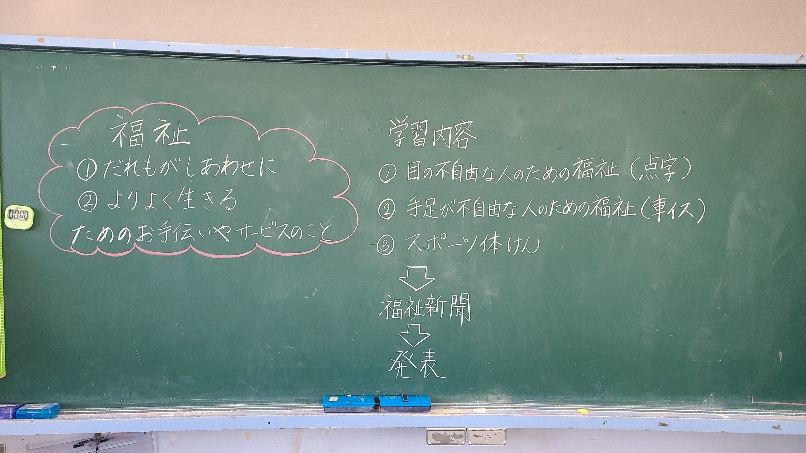 福祉
①だれもがしあわせに
②よりよく生きる
ためのお手伝いやサービスのこと
学習内容
①目の不自由な人のための福祉(点字)
②手足が不自由な人のための福祉(車イス)
③スポーツ体けん
⇩
福祉新聞
⇩
発表